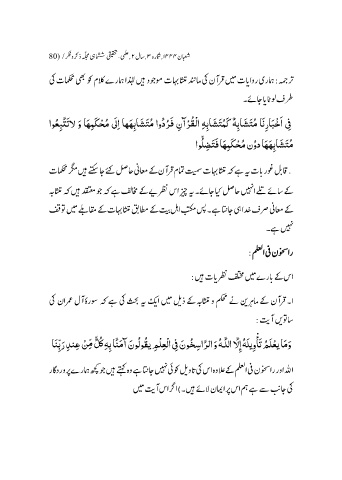 شعبان ۱۴۴۴، شمارہ ۳، سال ۲، علمی۔ تحقیقی ششماہی مجلّہ ذکر و فکر / (80
ترجمہ : ہماری روایات میں قرآن کی مانند متشابہات موجود ہیں لہٰذا ہمارے کلام کو بھی محکمات کی
طرف لوٹایا جائے۔
فِی أَخْبَارِنَا مُتَشَابِهٌ كَمُتَشَابِهِ الْقُرْآنِ فَرُدُّوا مُتَشَابِهَهَا إِلَى مُحْكَمِهَا وَ لَاتَتَّبِعُوا
مُتَشَابِهَهَا دُونَ مُحْكَمِهَا فَتَضِلُّوا
. قابل غور بات یہ ہے کہ متشابہات سمیت تمام قرآن کے معانی حاصل کئے جا سکتے ہیں مگر محکمات
کے سائے تلے انہیں حاصل کیا جائے۔ یہ چیز اس نظریے کے مخالف ہے کہ جو معتقد ہیں کہ متشابہ
کے معانی صرف خدا ہی جانتا ہے۔ پس مکتب اہل بیت کے مطابق متشابہات کے مقابلے میں توقف
نہیں ہے۔
راسخون فی العلم :
اس کے بارے میں مختلف نظریات ہیں :
۱۔ قرآن کے ماہرین نے محکم و متشابہ کے ذیل میں ایک یہ بحث کی ہے کہ سورۂ آل عمران کی
ساتویں آیت :
وَمَا يَعْلَمُ تَأْوِيلَهُ إِلَّا اللَّهُ وَالرَّاسِخُونَ فِي الْعِلْمِ يَقُولُونَ آمَنَّا بِهِ كُلٌّ مِّنْ عِندِ رَبِّنَا
اللہ اور راسخون فی العلم کے علاوہ اس کی تاویل کوئی نہیں جانتا ہے وہ کہتے ہیں جو کچھ ہمارے پروردگار
کی جانب سے ہے ہم اس پر ایمان لائے ہیں۔) اگر اس آیت میں